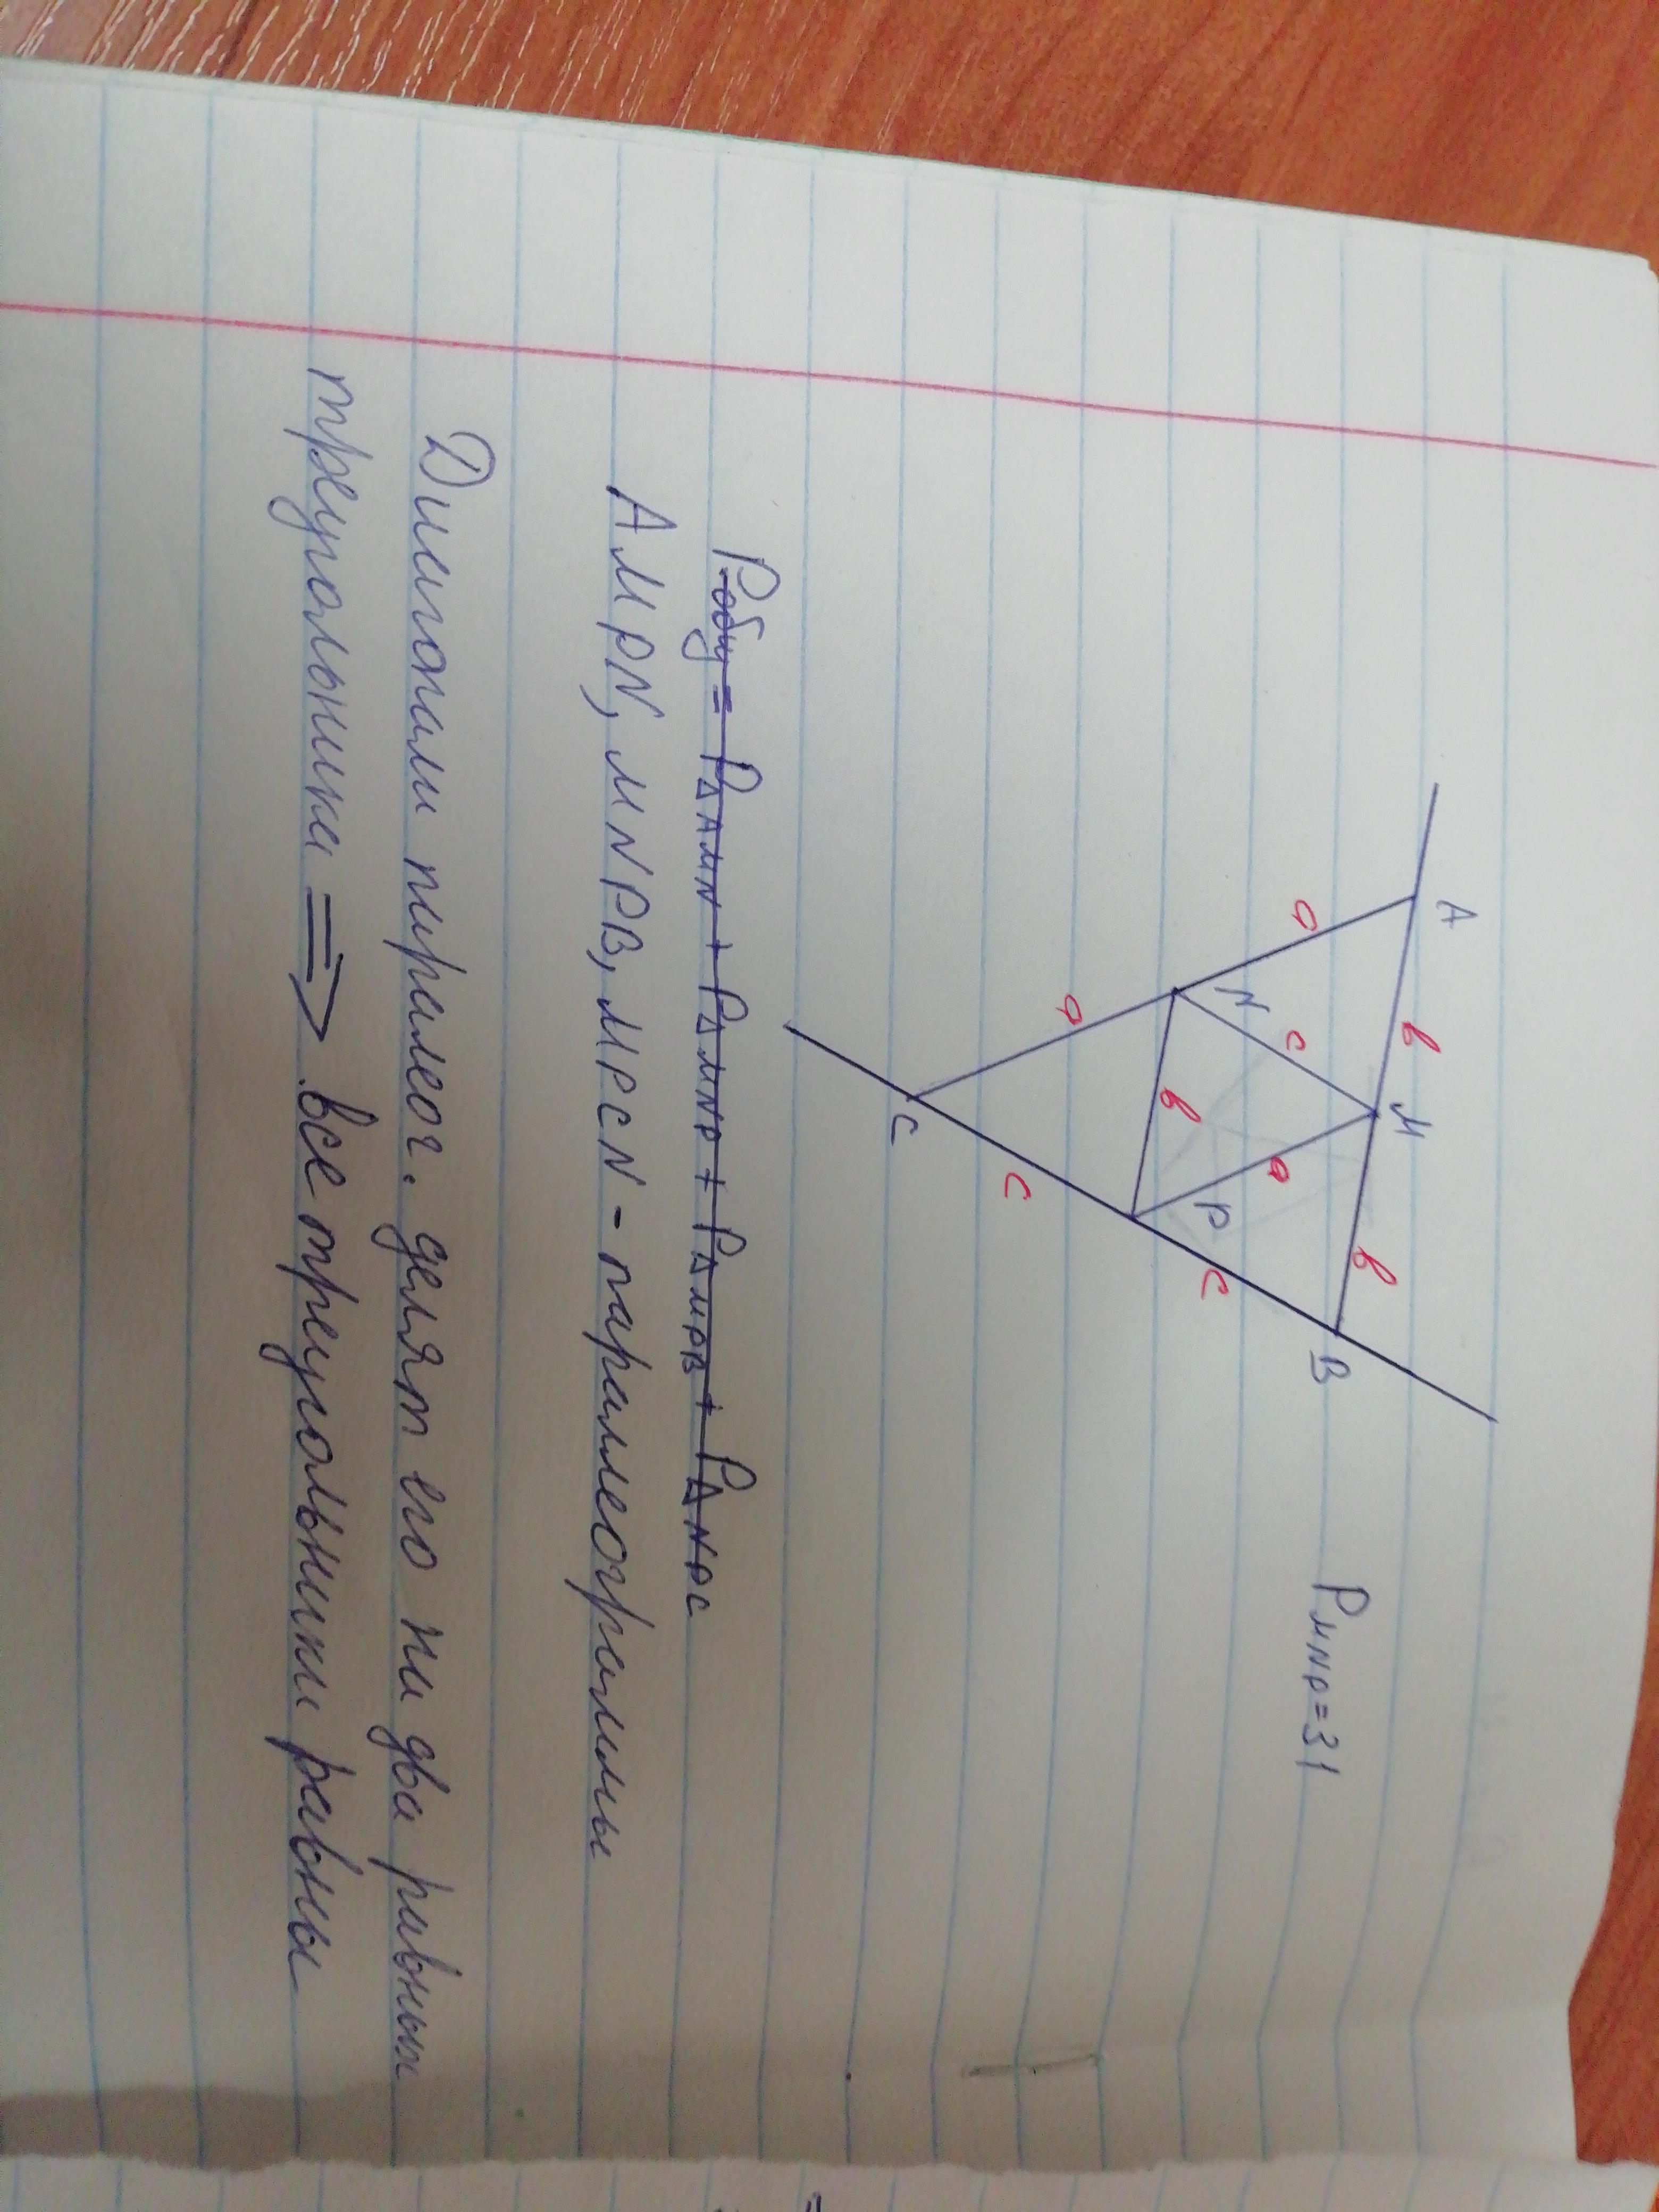 A
M
B
N
P
C
b
b
a
c
a
b
a
c
c
P MNP = 31
Pобщ = P△AMN + P△MNP + P△MPB + P△NPC
AMPN, MNPB, MPCN - паралеограммы
Диагонали паралеог. делят его на два равных
треугольника => все треугольники равны